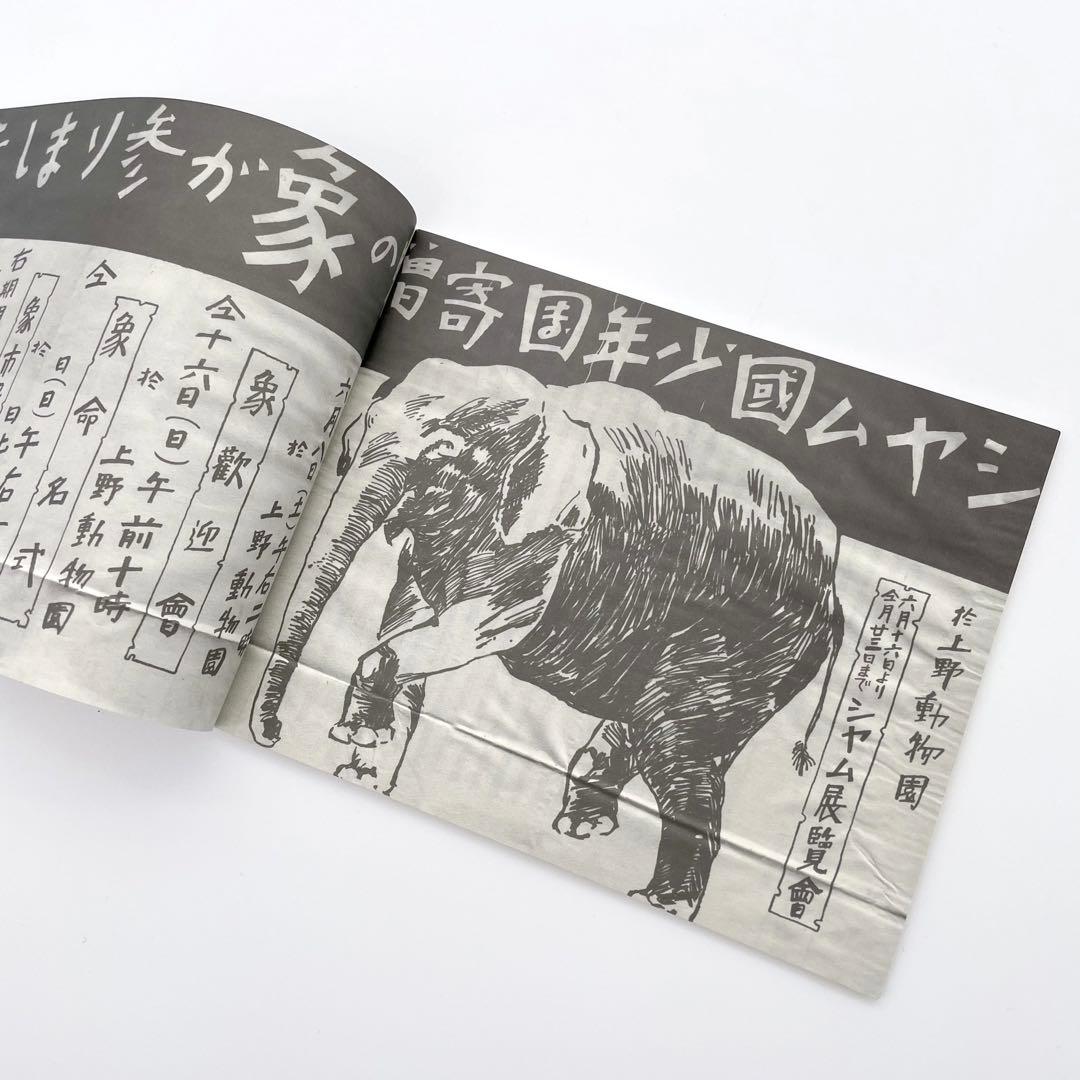 シヤム國少年團寄贈の象が参りまし
於上野動物園
六月十六日より
仝月廿三日まで
シヤム展覽會
六月八日(土)午右二時
於上野動物園
象歡迎會
仝十六日(日)午前十時
於上野動物園
象命名式
仝 日(日)午右一
於
象
右期